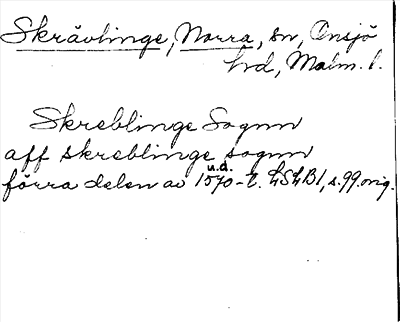 Skrävlinge, Norra, sn, Onsjö
hrd, Malm. l.
Skreblinge Sognn
aff skreblinge sognn
u.d.
förra delen av 1570-t. LSLB1, s.99.orig.